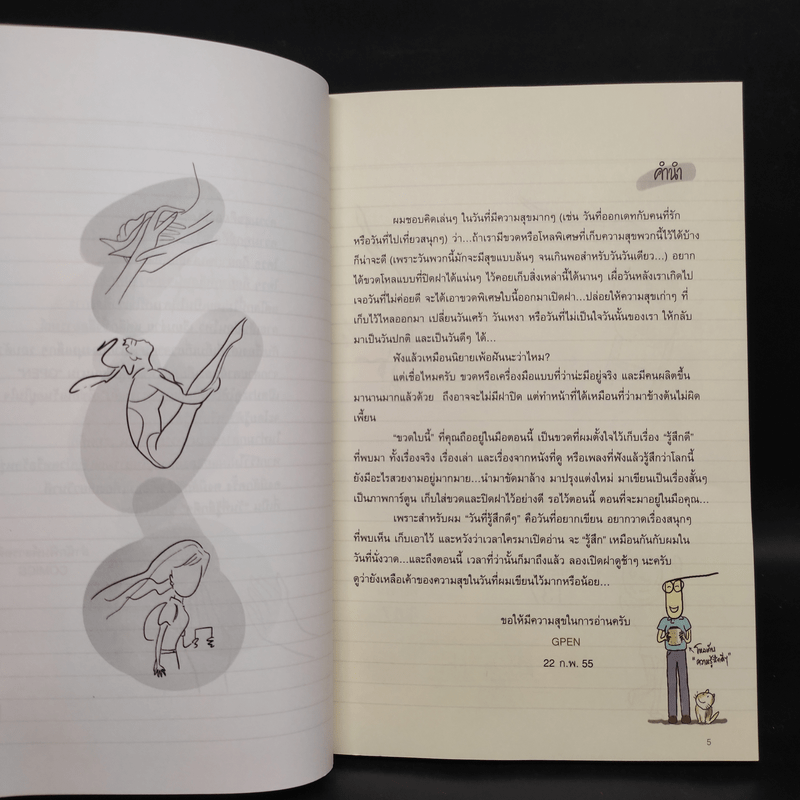 คำนำ
ผมชอบคิดเล่นๆ ในวันที่มีความสุขมากๆ (เช่น วันที่ออกเดทกับคนที่รัก
หรือวันที่ไปเที่ยวสนุกๆ) ว่า...ถ้าเรามีขวดหรือโหลพิเศษที่เก็บความสุขพวกนี้ไว้ได้บ้าง
ก็น่าจะดี (เพราะวันพวกนี้มักจะมีสุขแบบล้นๆ จนเกินพอสำหรับวันวันเดียว...) อยาก
ได้ขวดโหลแบบที่ปิดฝาได้แน่นๆ ไว้คอยเก็บสิ่งเหล่านี้ได้นานๆ เผื่อวันหลังเราเกิดไป
เจอวันที่ไม่ค่อยดี จะได้เอาขวดพิเศษใบนี้ออกมาเปิดฝา...ปล่อยให้ความสุขเก่าๆ ที่
เก็บไว้ไหลออกมา เปลี่ยนวันเศร้า วันเหงา หรือวันที่ไม่เป็นใจวันนั้นของเรา ให้กลับ
มาเป็นวันปกติ และเป็นวันดีๆ ได้...
ฟังแล้วเหมือนนิยายเพ้อฝันนะว่าไหม?
แต่เชื่อไหมครับ ขวดหรือเครื่องมือแบบที่ว่าน่ะมีอยู่จริง และมีคนผลิตขึ้น
มานานมากแล้วด้วย ถึงอาจจะไม่มีฝาปิด แต่ทำหน้าที่ได้เหมือนที่ว่ามาข้างต้นไม่ผิด
เพี้ยน
“ขวดใบนี้” ที่คุณถืออยู่ในมือตอนนี้ เป็นขวดที่ผมตั้งใจไว้เก็บเรื่อง “รู้สึกดี”
ที่พบมา ทั้งเรื่องจริง เรื่องเล่า และเรื่องจากหนังที่ดู หรือเพลงที่ฟังแล้วรู้สึกว่าโลกนี้
ยังมีอะไรสวยงามอยู่มากมาย...นำมาขัดมาล้าง มาปรุงแต่งใหม่ มาเขียนเป็นเรื่องสั้นๆ
เป็นภาพการ์ตูน เก็บใส่ขวดและปิดฝาไว้อย่างดี รอไว้ตอนนี้ ตอนที่จะมาอยู่ในมือคุณ...
เพราะสำหรับผม “วันที่รู้สึกดีๆ” คือวันที่อยากเขียน อยากวาดเรื่องสนุกๆ
ที่พบเห็น เก็บเอาไว้ และหวังว่าเวลาใครมาเปิดอ่าน จะ “รู้สึก” เหมือนกันกับผมใน
วันที่นั่งวาด...และถึงตอนนี้ เวลาที่ว่านั้นก็มาถึงแล้ว ลองเปิดฝาดูช้าๆ นะครับ
ดูว่ายังเหลือเค้าของความสุขในวันที่ผมเขียนไว้มากหรือน้อย...
ขอให้มีความสุขในการอ่านครับ
GPEN
22 ก.พ. 55
โหลเก็บ
“ความรู้สึกดีๆ”
5